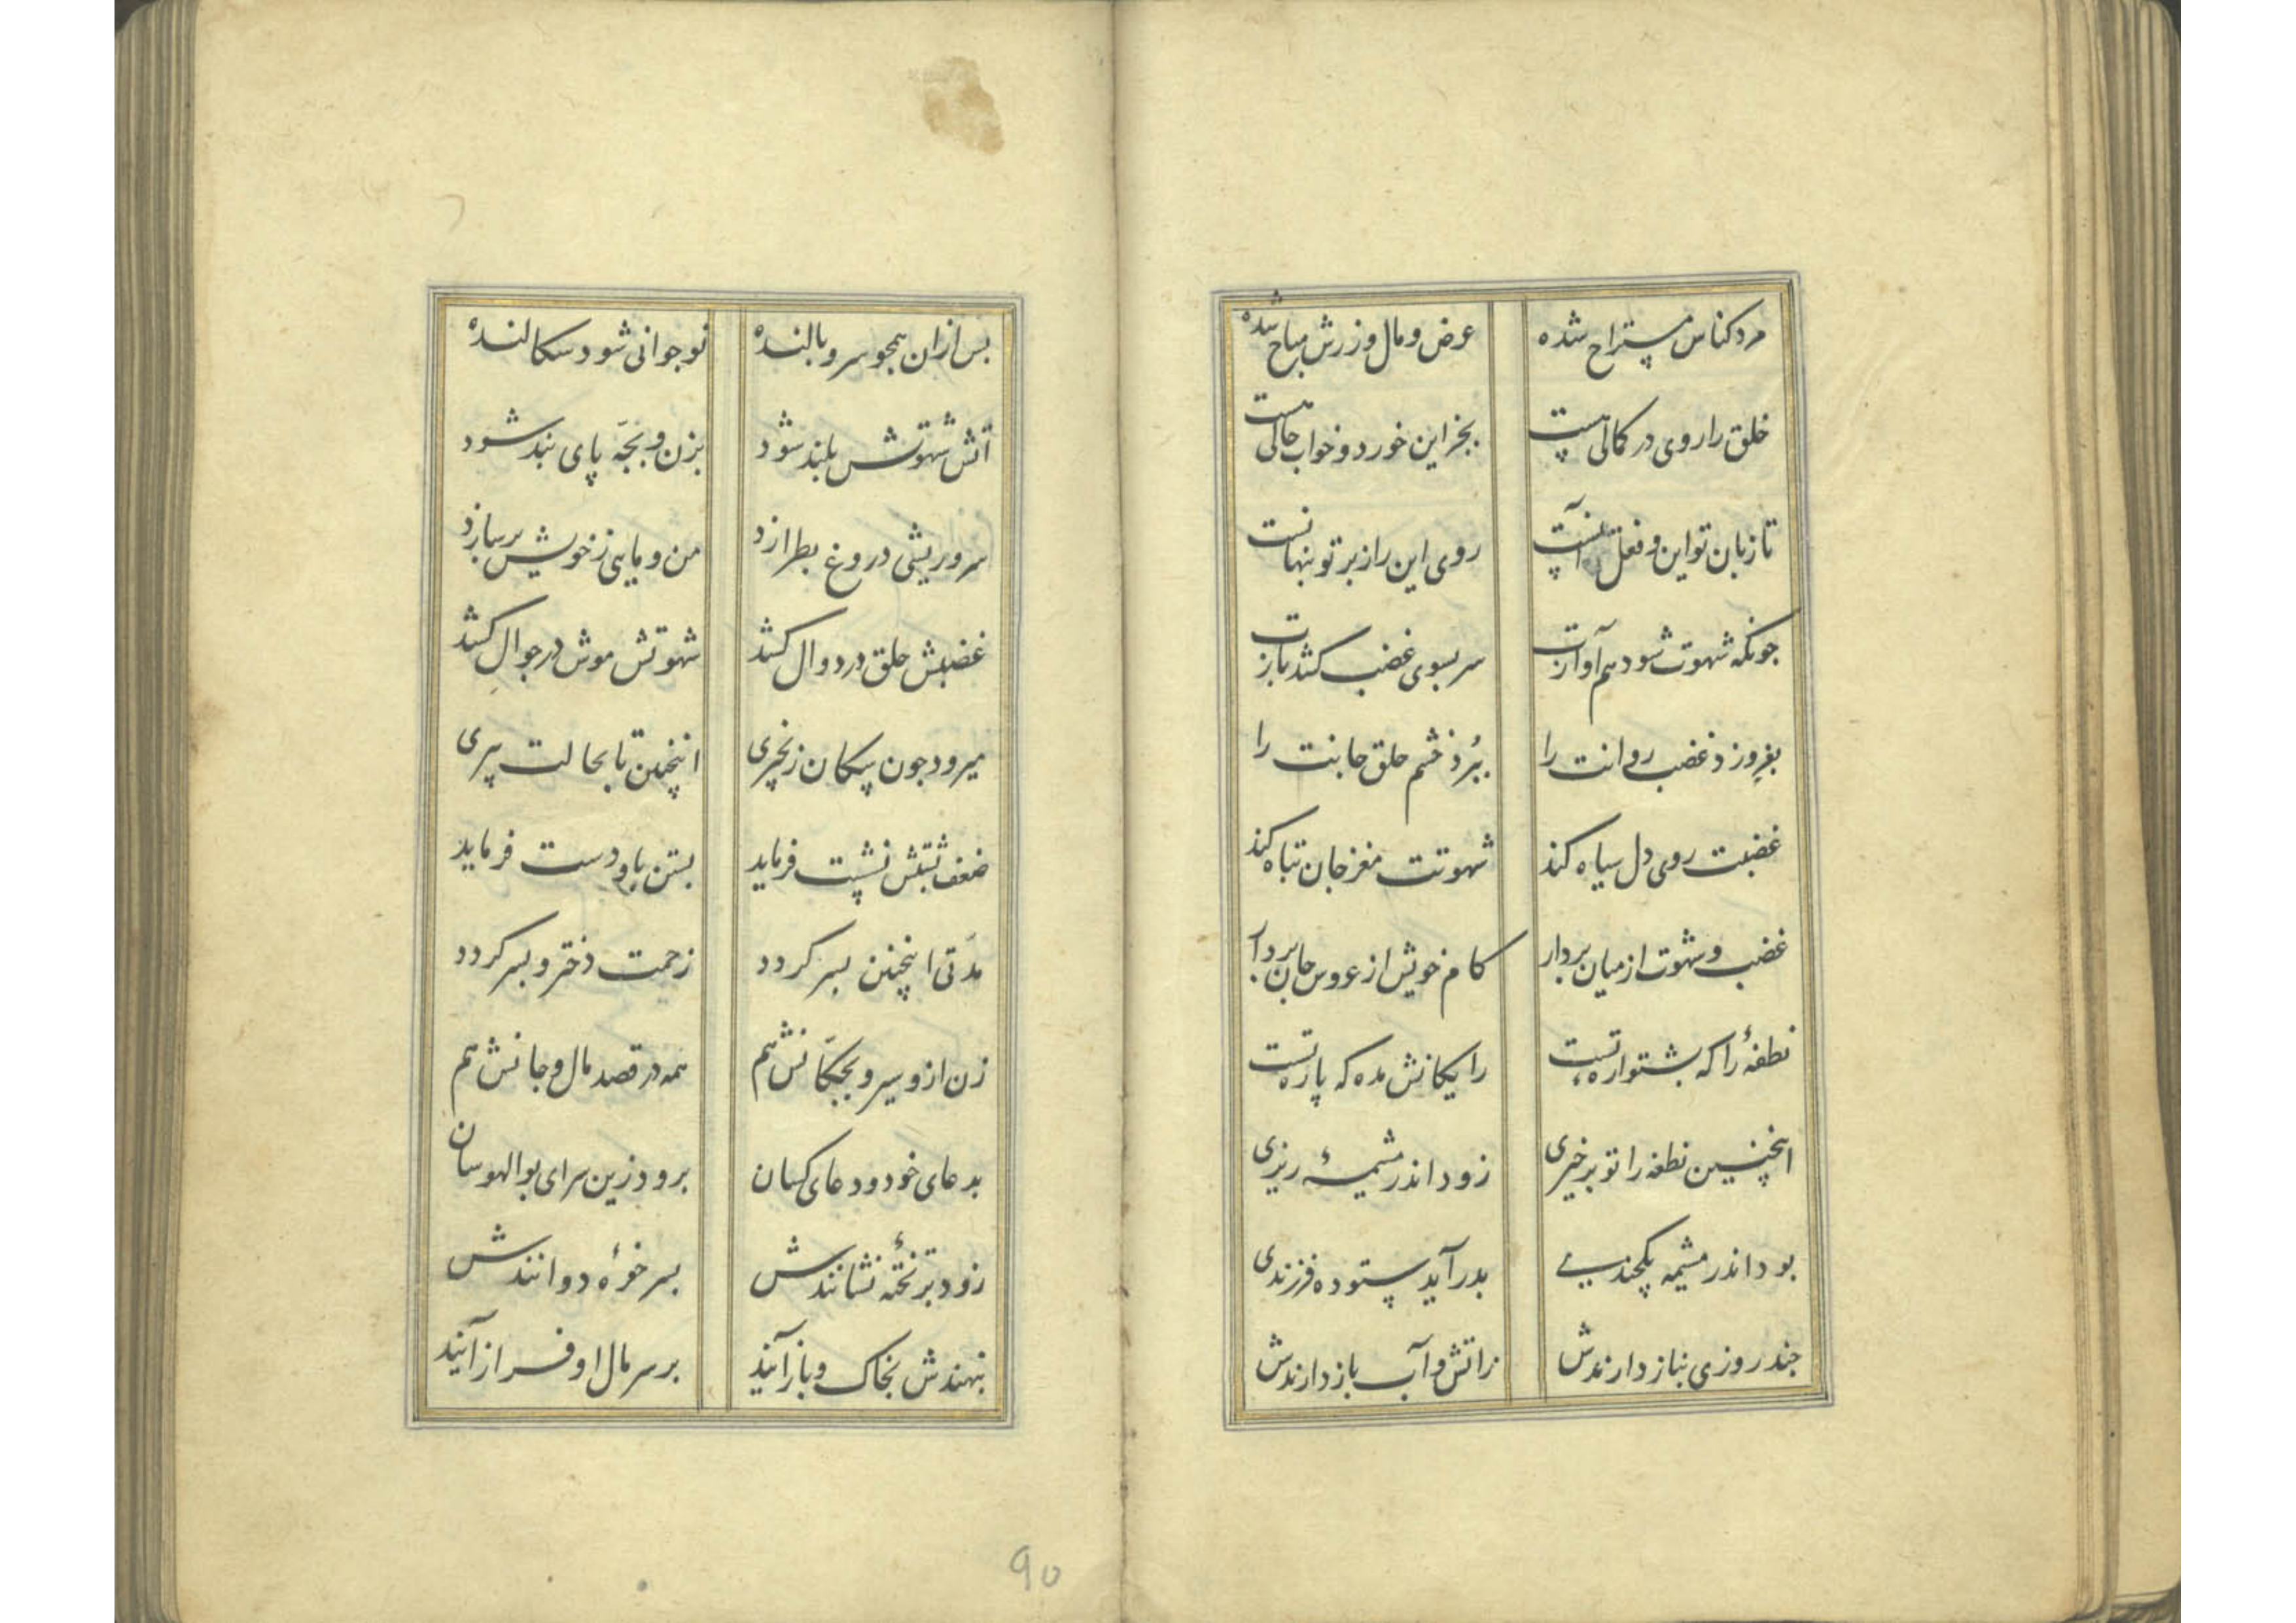 مرد کناس مستراح شده عرض و مال و زرش مباح شده
خلق را روی در کمالی هست بجز این خورد و خواب حالی هست
تا زبان تو این و فعل آنست روی این راز بر تو پنهانست
چونکه شهوت شود هم آوازت سر بسوی غضب کشد بازت
بفروزد غضب روانت را ببرد خشم حلق جانت را
غضبت روی دل سیاه کند شهوتت مغز جان تباه کند
غضب و شهوت از میان بردار کام خویش از عروس جان بردار
نطفهٔ را که پشتواره تست رایکانش مده که پاره تست
اینچنین نطفه را تو برخیری زود اندر مشیمهٔ ریزی
بود اندر مشیمه یکچندی بدر آید ستوده فرزندی
چند روزی بناز دارندش ز آتش و آب باز دارندش
بس ازان همچو سرو بالنده نوجوانی شود سکالنده
آتش شهوتش بلند شود بزن و بچّه پای بند شود
سر و ریشی دروغ بطرازد من و مایی ز خویش برسازد
غضبش حلق در دوال کشد شهوتش موش در جوال کشد
میرود چون سکان زنجیری اینچنین تا بحالت پیری
ضعف شیبش نشست فرماید بستن پا و دست فرماید
مدّتی اینچنین بسر کردد زحمت دختر و بسر کردد
زن ازو سیر و بچکانش هم همه در قصد مال و جانش هم
بدعای خود و دعای کسان برود زین سرای بوالهوسان
زود بر تختهٔ نشانندش بسر خؤه دوانندش
بنهندش بخاک و باز آیند بر سر مال او فراز آیند
90